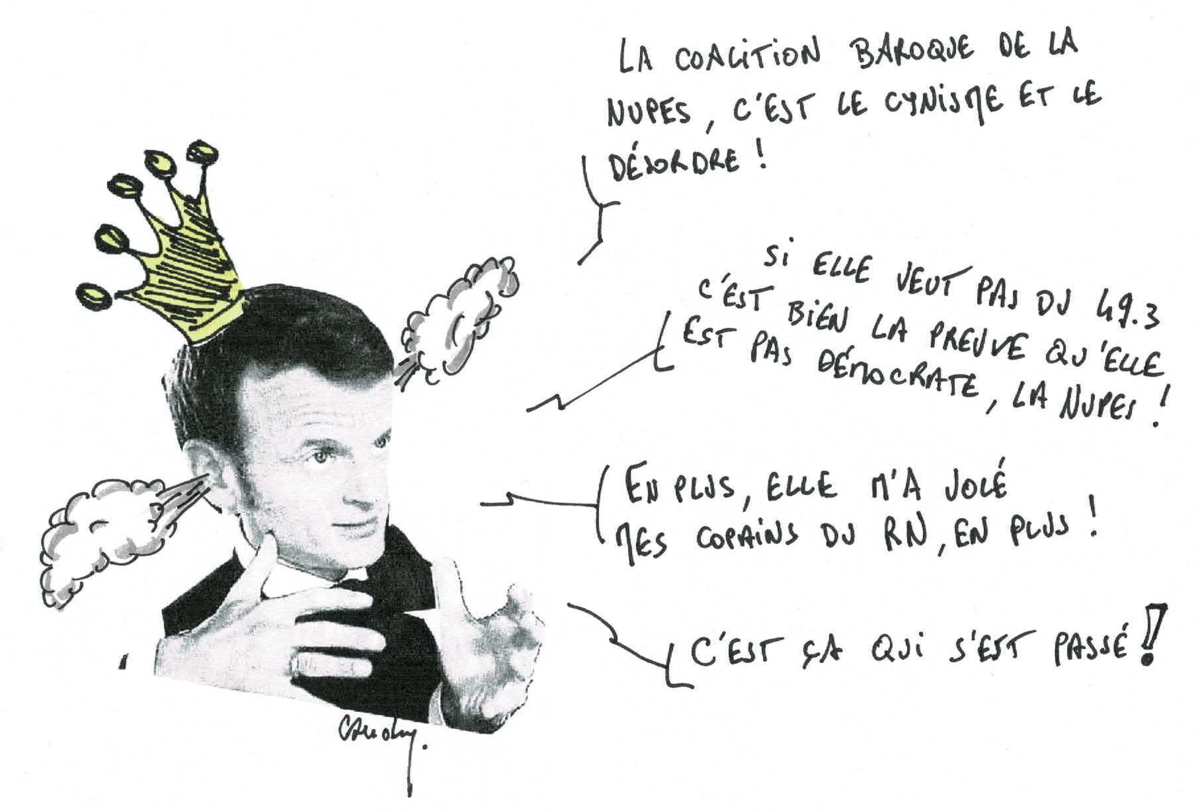 LA COALITION BAROQUE DE LA
NUPES, C'EST LE CYNISME ET LE
DÉSORDRE !
SI ELLE VEUT PAS DU 49.3
C'EST BIEN LA PREUVE QU'ELLE
EST PAS DÉMOCRATE, LA NUPES !
EN PLUS, ELLE M'A VOLÉ
MES COPAINS DU RN, EN PLUS !
C'EST ÇA QUI S'EST PASSÉ !